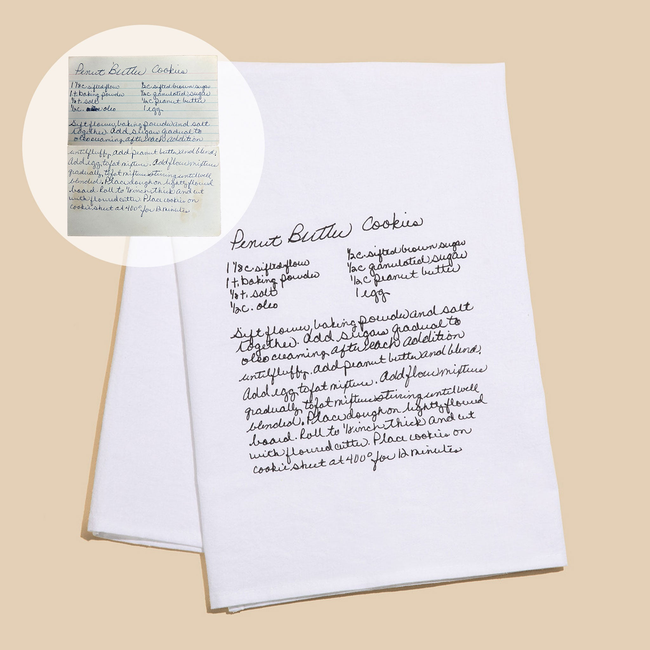 Penut Butter Cookies
1 1/8c sifted flow 1/2c sifted brown sugar
1 t. baking powder 1/2c granulated sugar
1/8 t. salt 1/2c peanut butter
1/2c. oleo 1 egg
Sift flower, baking powder and salt
together. Add sugars gradual to
oleo creaming after each addition
until fluffy. add peanut butter and blend.
Add egg to fat mixture. Add flow mixture
gradually, to fat mixture stirring until well
blended. Place dough on lightly floured
board. Roll to 1/8 inch thick and cut
with floured cutter. Place cookies on
cookie sheet at 400° for 12 minutes
Penut Butter Cookies
1 1/8c sifted flow 1/2c. sifted brown sugar
1 t. baking powder 1/2c granulated sugar
1/8 t. salt 1/2c peanut butter
1/2c. oleo 1 egg
Sift flower, baking powder and salt
together. Add sugars gradual to
oleo creaming after each addition
until fluffy. add peanut butter and blend.
Add egg to fat mixture. Add flow mixture
gradually, to fat mixture stirring until well
blended. Place dough on lightly floured
board. Roll to 1/8 inch thick and cut
with floured cutter. Place cookies on
cookie sheet at 400° for 12 minutes